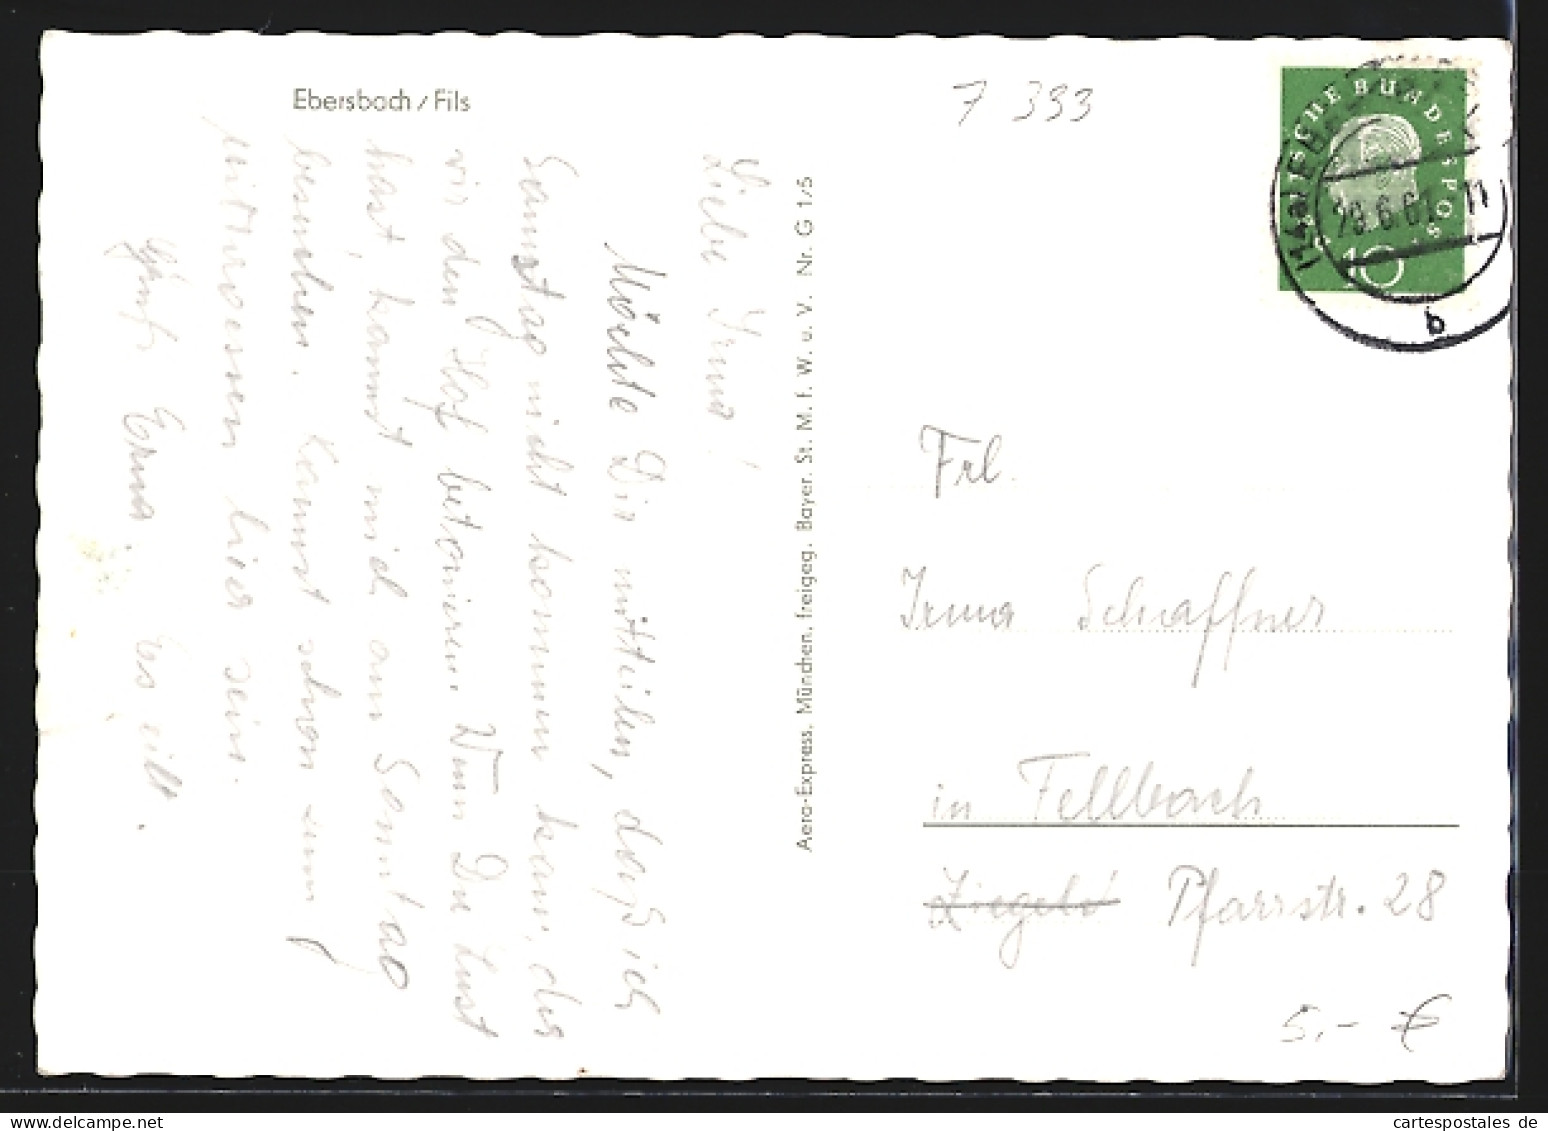 Ebersbach / Fils
7 333
Liebe Irma!
Möchte Dir mitteilen, daß ich
Samstag nicht kommen kann, da
wir den Hof betonieren. Wenn Du Lust
hast, kannst mich am Sonntag
besuchen. Kannst schon zum
Mittagessen hier sein.
Erna. Es eilt.
Aero-Express, München, freigeg. Bayer. St. M. f. W. u. V. Nr. G 1/5
DEUTSCHE BUNDESPOST
10
29.6.61 -11
b
Frl.
Irma Schaffner
in Fellbach
Pfarrstr. 28
5,- €
cartespostales de